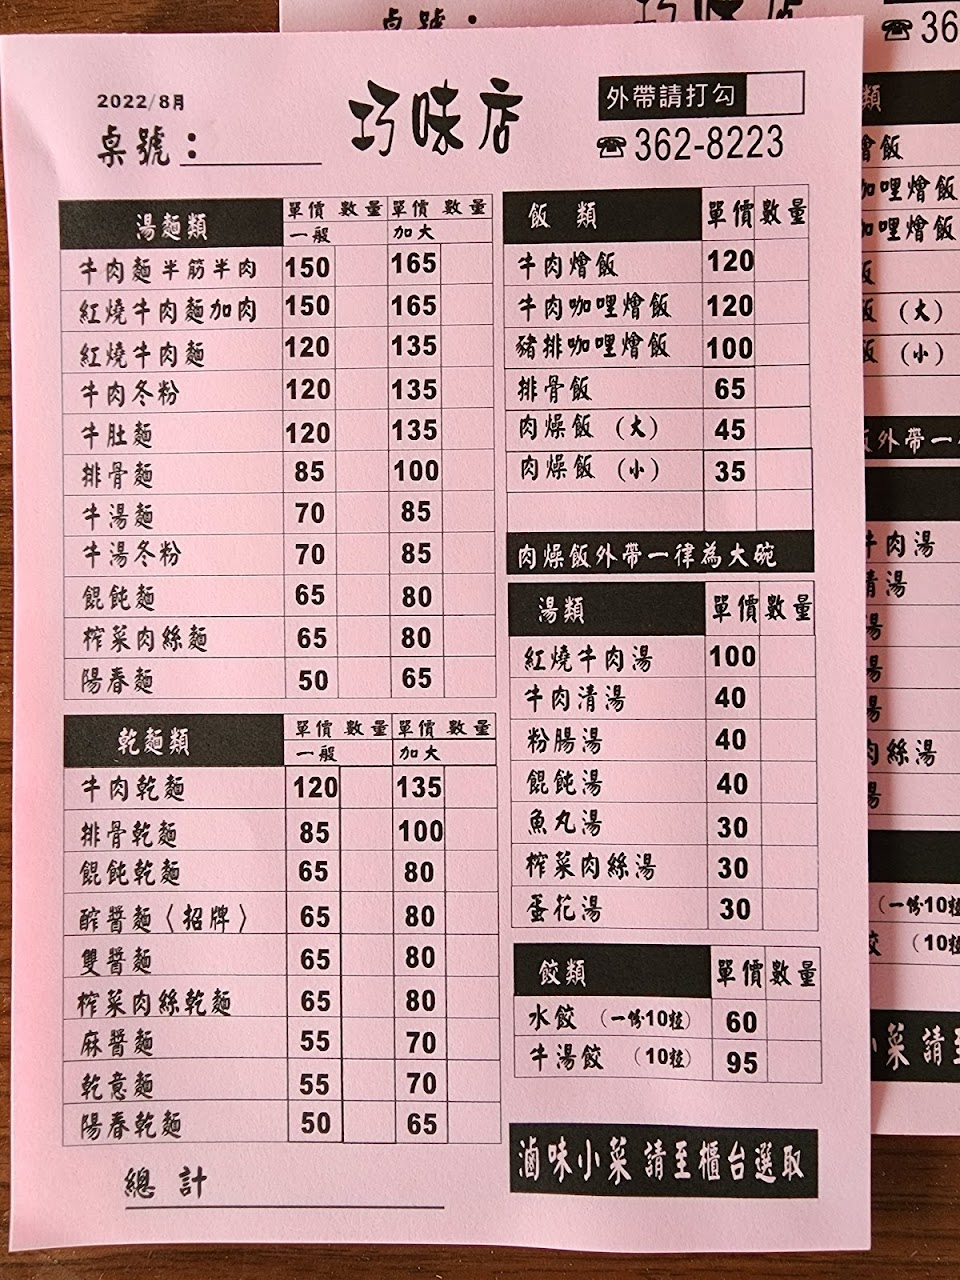 2022/8月
桌號：
巧味店
外帶請打勾
☎362-8223
湯麵類 單價 數量 單價 數量
一般 加大
牛肉麵半筋半肉 150 165
紅燒牛肉麵加肉 150 165
紅燒牛肉麵 120 135
牛肉冬粉 120 135
牛肚麵 120 135
排骨麵 85 100
牛湯麵 70 85
牛湯冬粉 70 85
餛飩麵 65 80
榨菜肉絲麵 65 80
陽春麵 50 65
乾麵類 單價 數量 單價 數量
一般 加大
牛肉乾麵 120 135
排骨乾麵 85 100
餛飩乾麵 65 80
酢醬麵〈招牌〉 65 80
雙醬麵 65 80
榨菜肉絲乾麵 65 80
麻醬麵 55 70
乾意麵 55 70
陽春乾麵 50 65
總計
飯類 單價 數量
牛肉燴飯 120
牛肉咖哩燴飯 120
豬排咖哩燴飯 100
排骨飯 65
肉燥飯（大） 45
肉燥飯（小） 35
肉燥飯外帶一律為大碗
湯類 單價 數量
紅燒牛肉湯 100
牛肉清湯 40
粉腸湯 40
餛飩湯 40
魚丸湯 30
榨菜肉絲湯 30
蛋花湯 30
餃類 單價 數量
水餃（一份10粒） 60
牛湯餃（10粒） 95
滷味小菜請至櫃台選取
桌號：
巧味店
☎36
類
燴飯
咖哩燴飯
咖哩燴飯
飯
飯（大）
飯（小）
飯外帶一
牛肉湯
清湯
湯
湯
湯
肉絲湯
湯
（一份10粒
餃（10粒
小菜請至